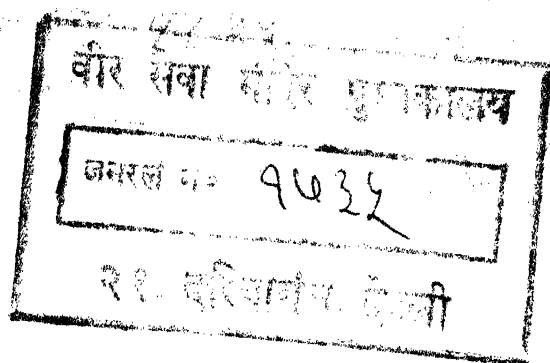 वीर सेवा मंदिर पुस्तकालय
जनरल नं० १७३५
२१, दरियागंज, देहली